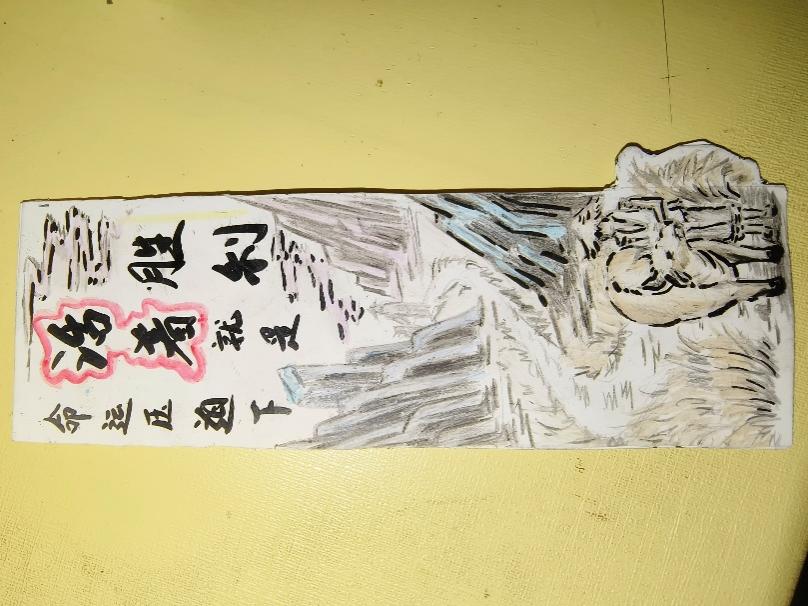 命运压迫下
活着就是
胜利